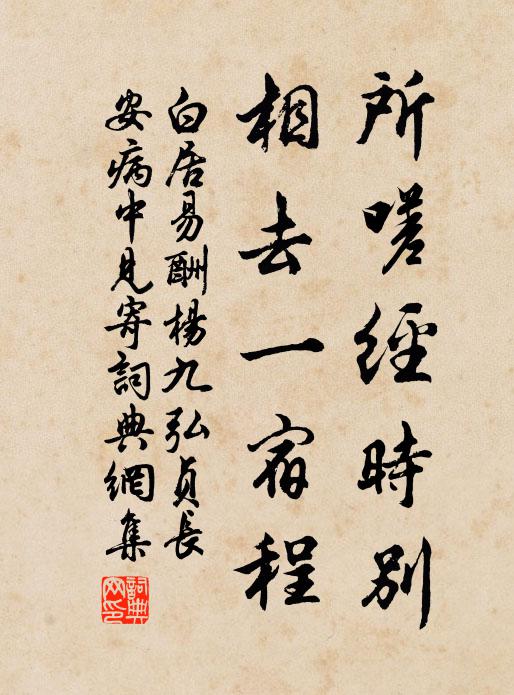 所嗟經時別
相去一宿程
白居易酬楊九弘貞長
安病中見寄詞典網集
詞典网印